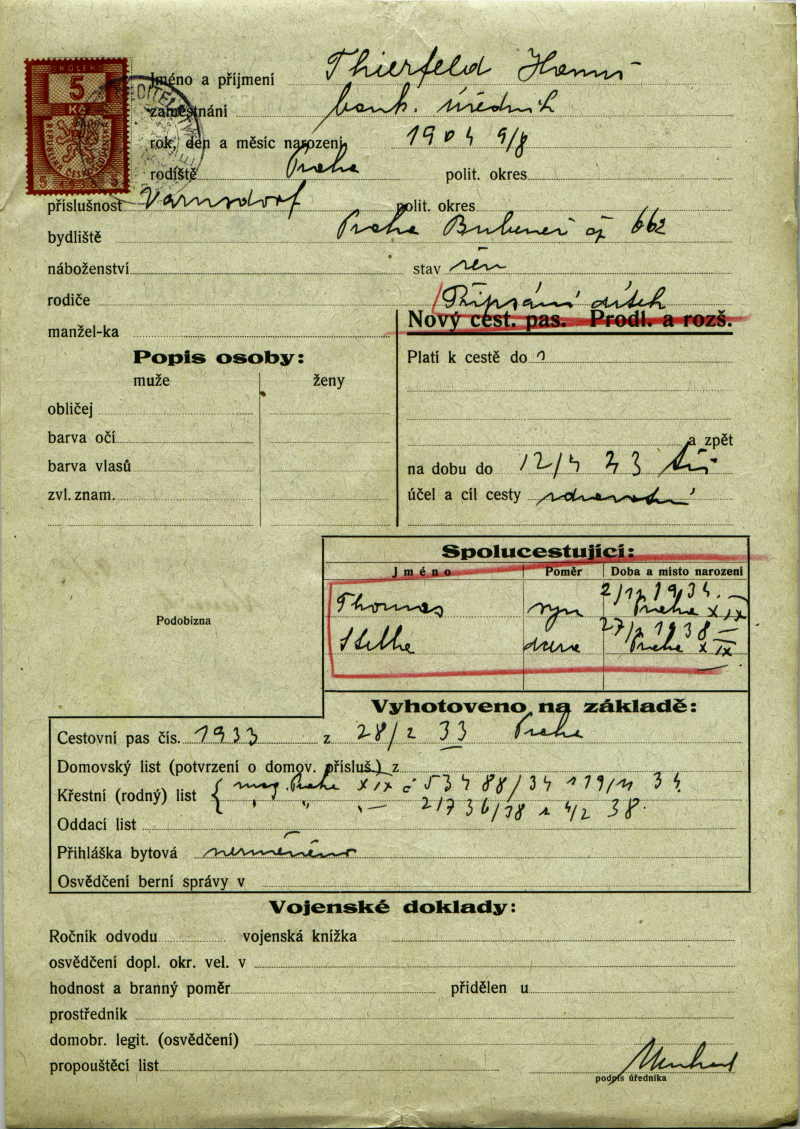 KOLEK
5
Kč
REPUBLIKA ČESKOSLOVENSKÁ
Jméno a příjmení Thierfeld Hanuš
zaměstnání bank. úředník
rok, den a měsíc narození 1904 9/8
rodiště Praha polit. okres
příslušnost Varnsdorf polit. okres
bydliště Praha Bubeneč čp 662
náboženství stav žen
rodiče Připsání dítek
manžel-ka Nový cest. pas. Prodl. a rozš.
Popis osoby: Platí k cestě do
muže ženy
obličej
barva očí a zpět
barva vlasů na dobu do 12/4
zvl. znam. účel a cíl cesty
Spolucestující:
Jméno Poměr Doba a místo narození
Thomas syn Praha XIX
dcera 1938 Praha XIX
Podobizna
Vyhotoveno na základě:
Cestovní pas čís. 1933 z 28/2 33 Praha
Domovský list (potvrzení o domov. přísluš.) z
Křestní (rodný) list { mag. Praha XIX č 53488/34 z 19/11 34.
" " — 21736/38 z 4/2 38.
Oddací list
Přihláška bytová neměněno
Osvědčení berní správy v
Vojenské doklady:
Ročník odvodu vojenská knížka
osvědčení dopl. okr. vel. v
hodnost a branný poměr přidělen u
prostředník
domobr. legit. (osvědčení)
propouštěcí list
podpis úředníka